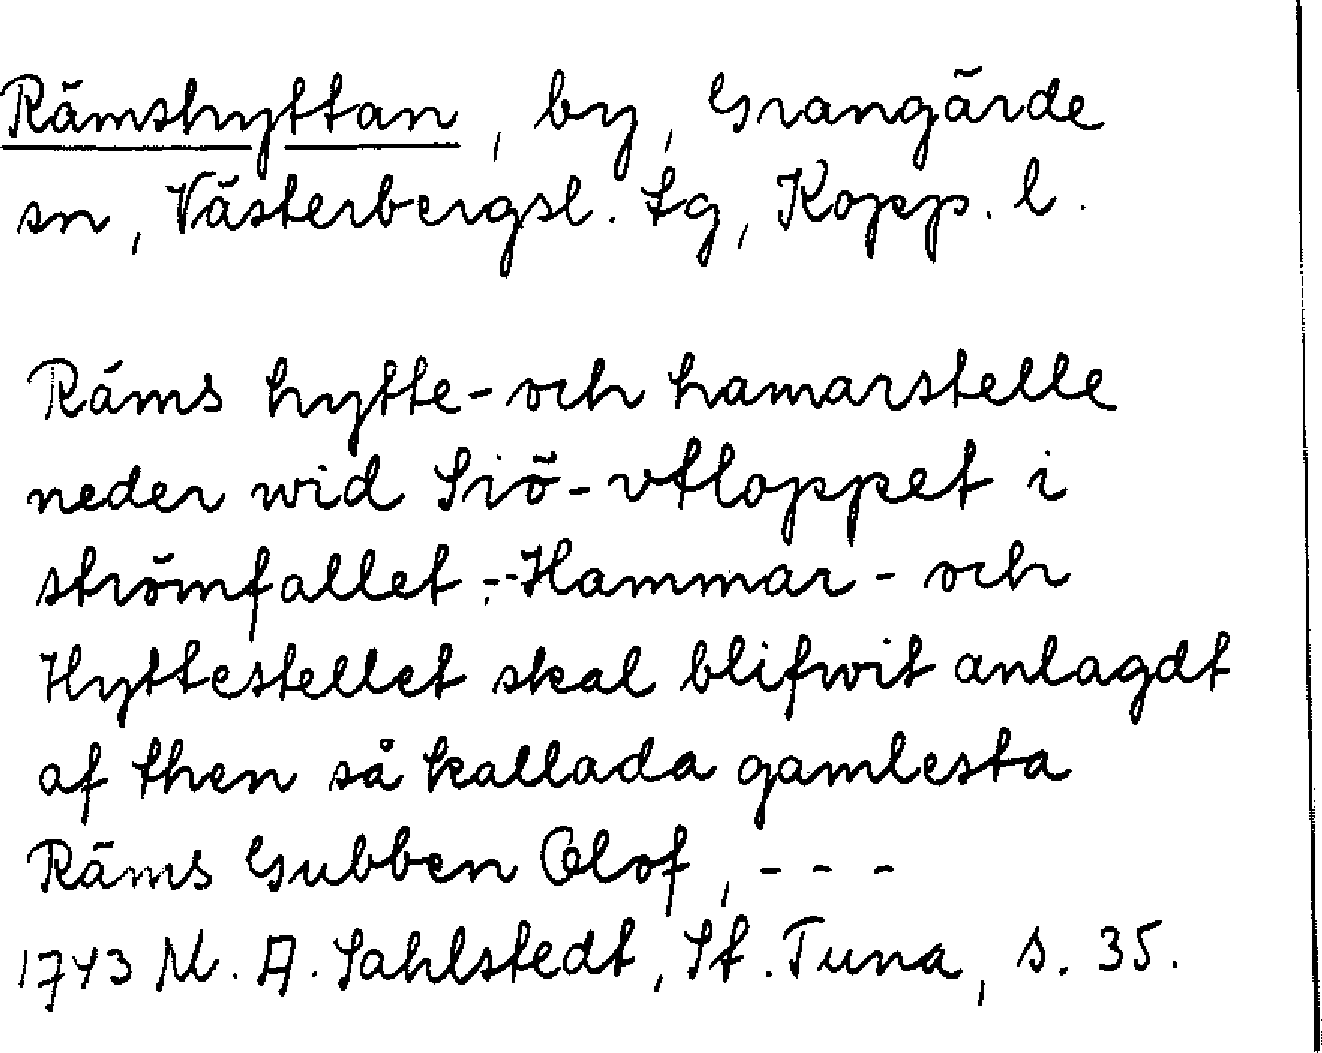 Rämshyttan, by, Grangärde
sn, Västerbergsl. tg, Kopp. l.
Räms hytte- och hamarstelle
neder wid Siö-vtloppet i
strömfallet -:- Hammar- och
Hyttestellet skal blifwit anlagdt
af then så kallada gamlesta
Räms Gubben Olof, - - -
1743 M. A. Sahlstedt, St. Tuna, s. 35.